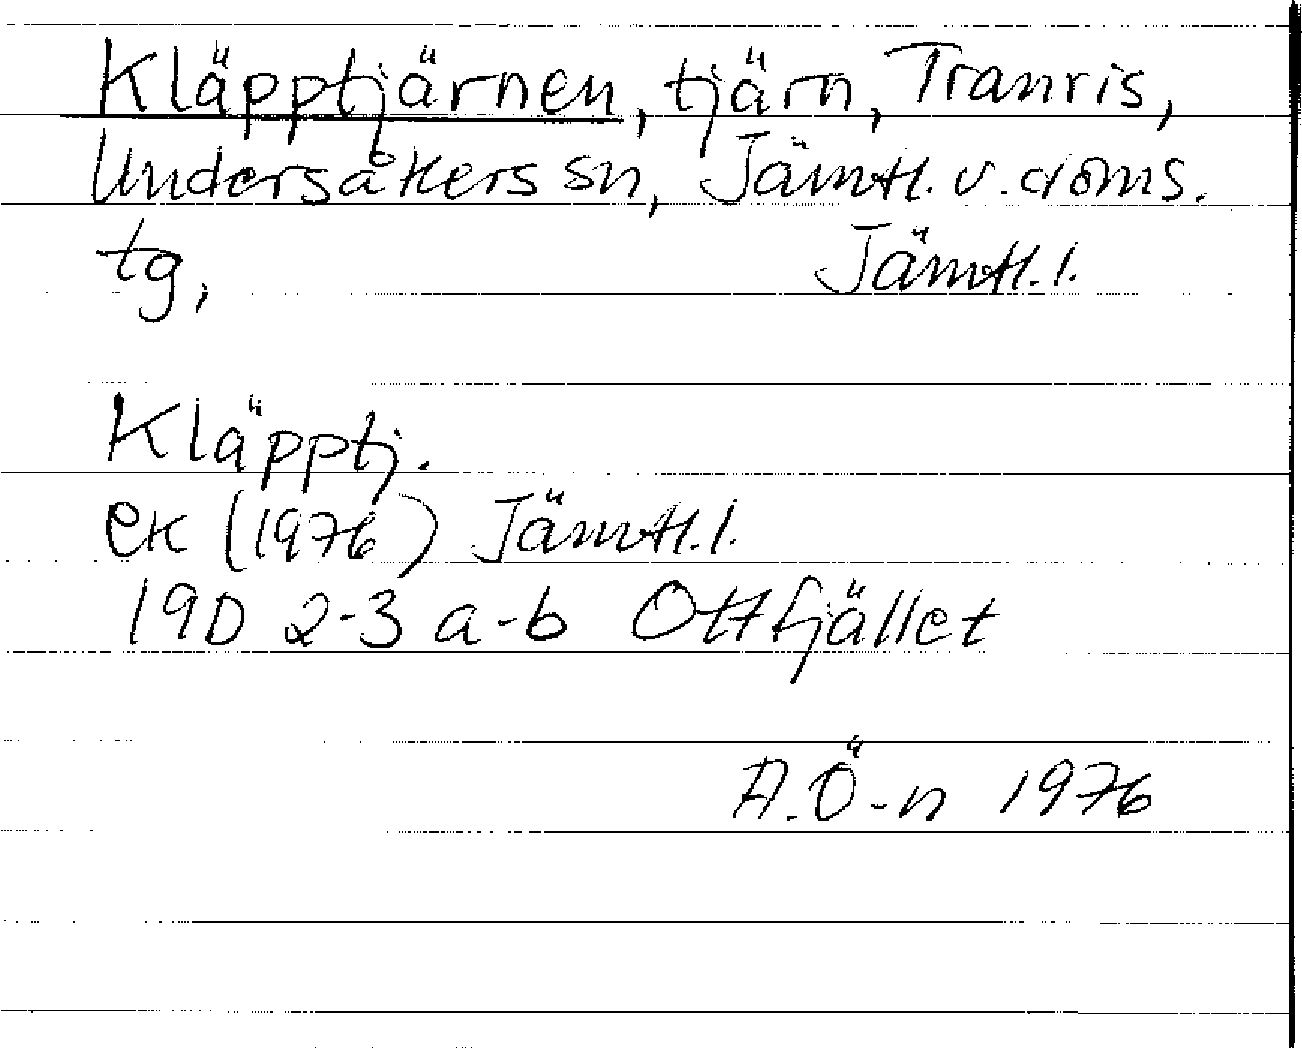 Kläpptjärnen, tjärn, Tranris,
Undersåkers sn, Jämtl. v. doms.
tg, Jämtl. l.
Kläpptj.
ek (1976) Jämtl. l.
19D 2-3 a-b Ottfjället
A. Ö-n 1976